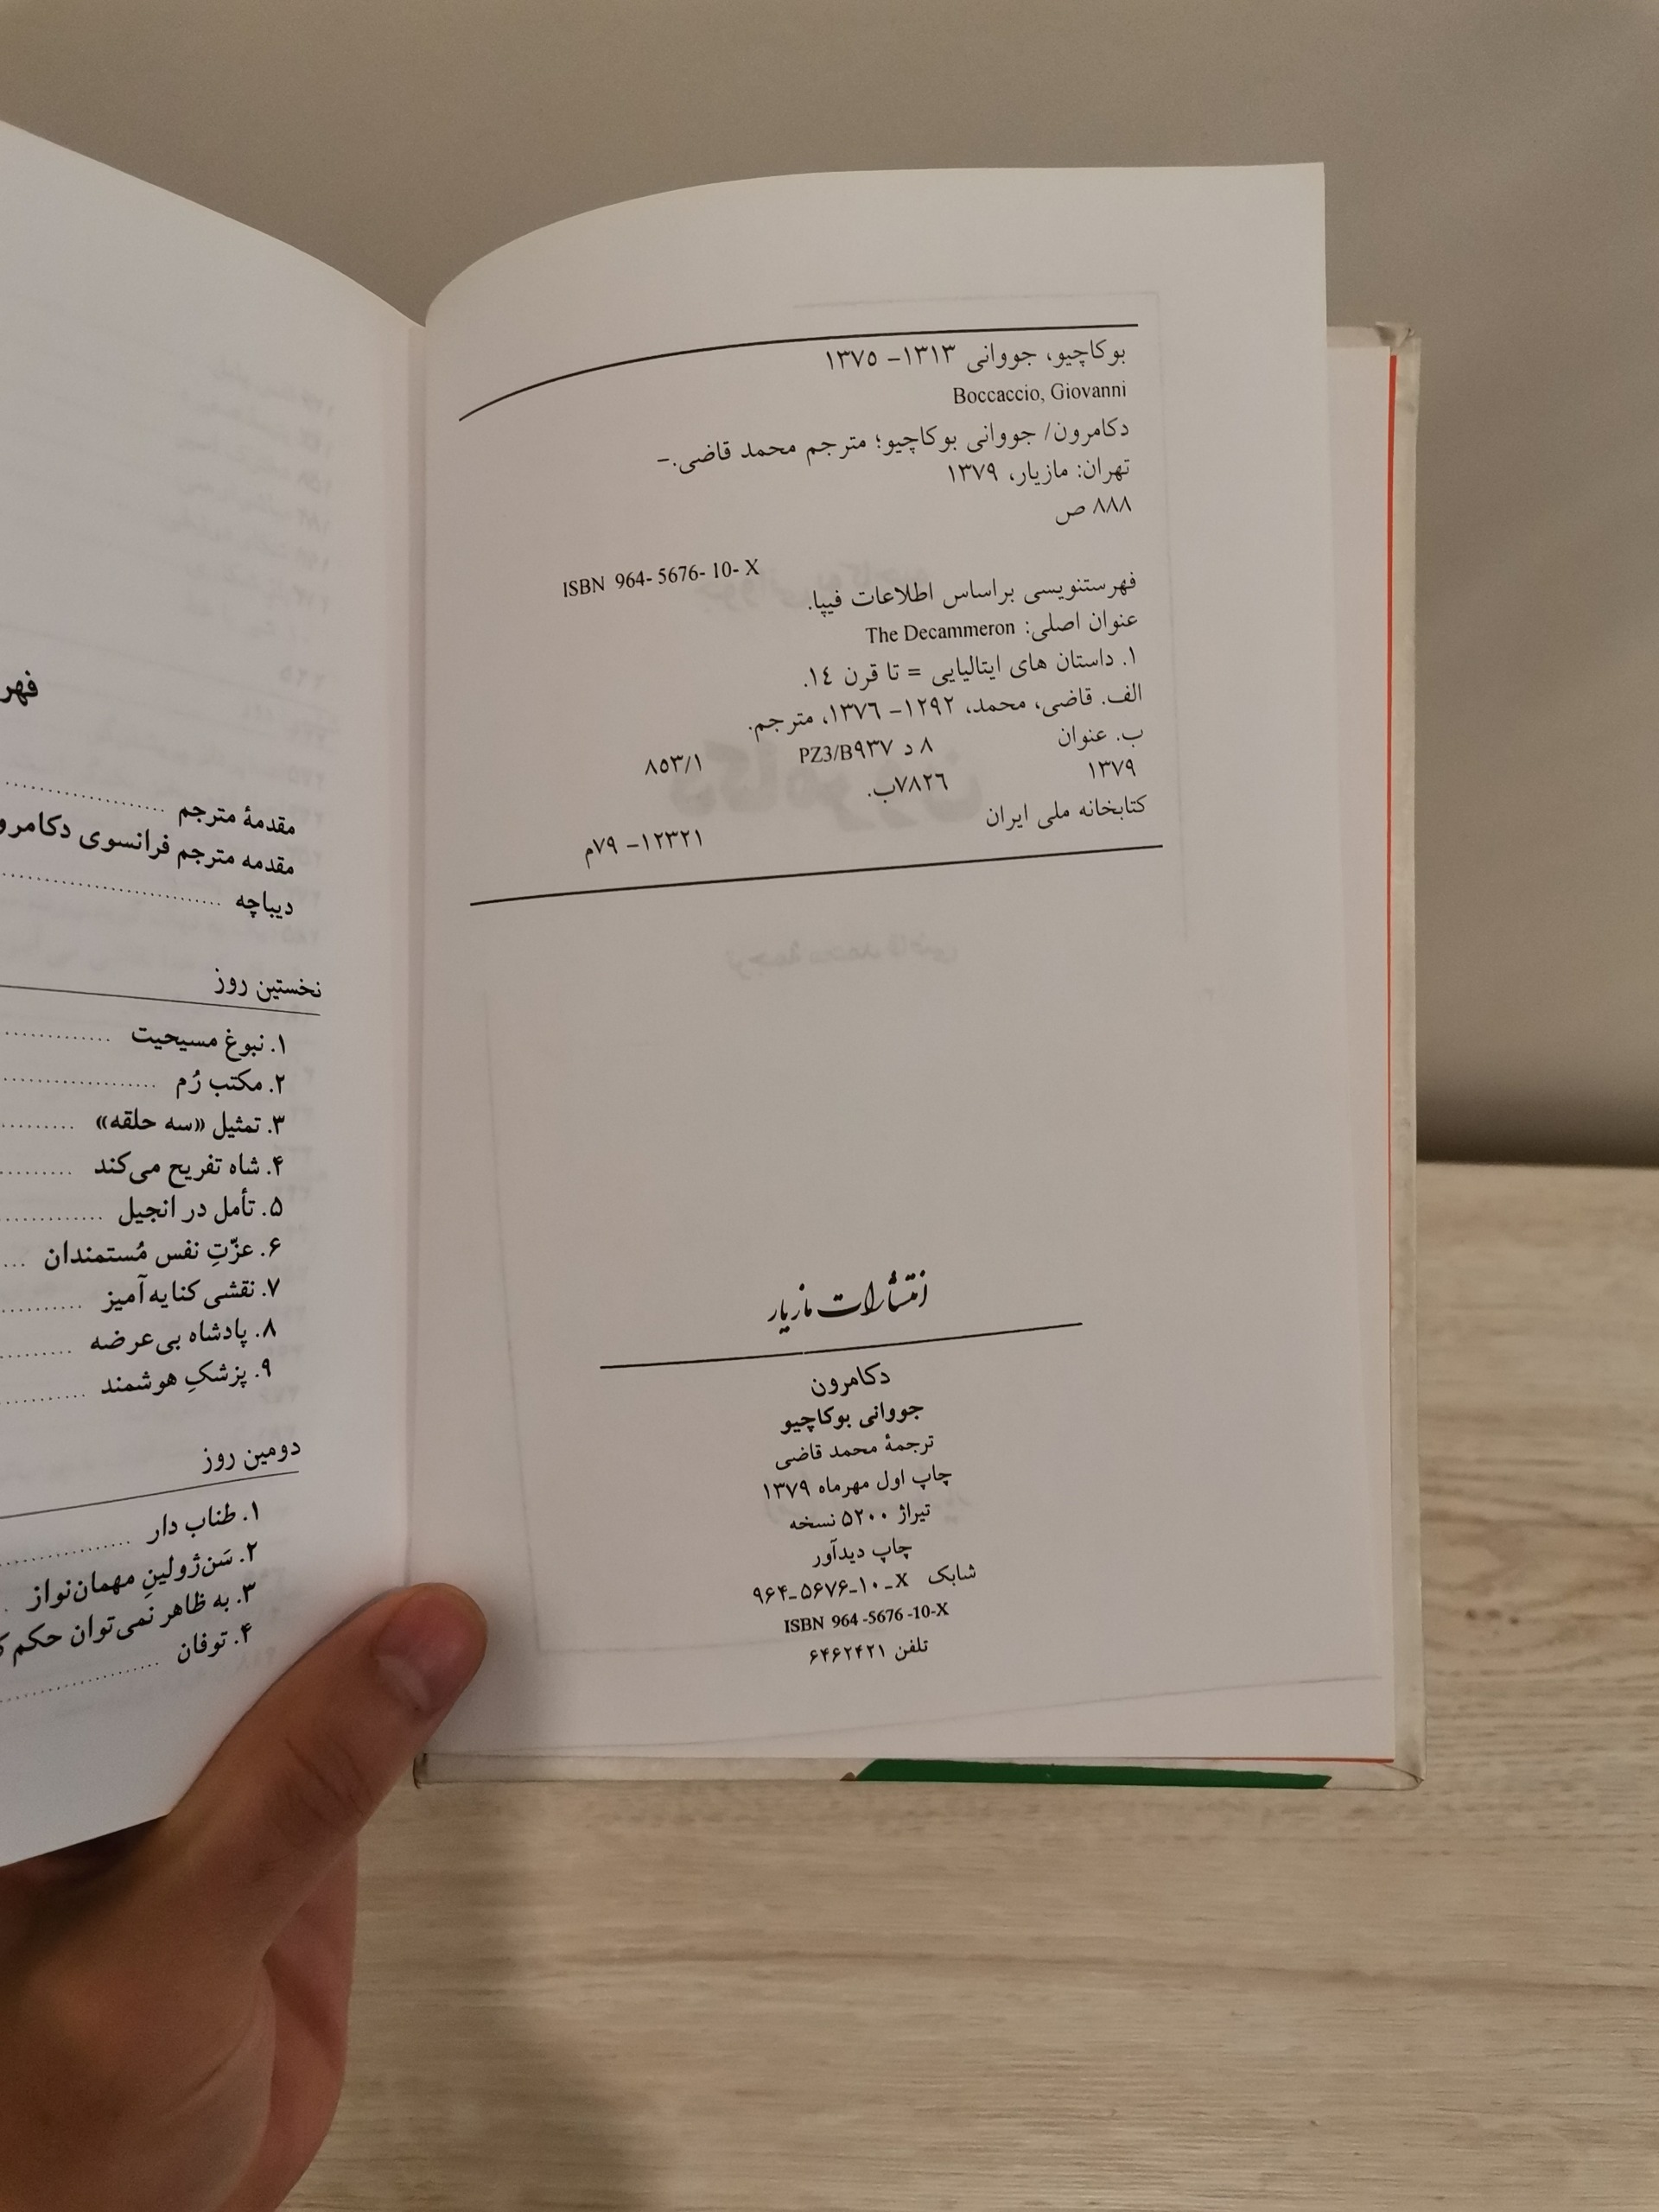 بوکاچیو، جووانی ۱۳۱۳- ۱۳۷۵
Boccaccio, Giovanni
دکامرون/ جووانی بوکاچیو؛ مترجم محمد قاضی.-
تهران: مازیار، ۱۳۷۹
۸۸۸ ص
ISBN 964- 5676- 10- X
فهرستنویسی براساس اطلاعات فیپا.
عنوان اصلی: The Decammeron
۱. داستان های ایتالیایی = تا قرن ١٤.
الف. قاضی، محمد، ۱۲۹۲- ۱۳۷٦، مترجم.
ب. عنوان
۸ د PZ3/B۹۳۷ ۸۵۳/۱
۱۳۷۹ ۷۸۲٦ب.
کتابخانه ملی ایران
۱۲۳۲۱- ۷۹م
انتشارات مازیار
دکامرون
جووانی بوکاچیو
ترجمهٔ محمد قاضی
چاپ اول مهرماه ۱۳۷۹
تیراژ ۵۲۰۰ نسخه
چاپ دیدآور
شابک X-۱۰-۵۶۷۶-۹۶۴
ISBN 964 -5676 -10-X
تلفن ۶۴۶۲۴۲۱
مقدمهٔ مترجم
مقدمه مترجم فرانسوی
دیباچه
نخستین روز
۱. نبوغ مسیحیت
۲. مکتب رُم
۳. تمثیل «سه حلقه»
۴. شاه تفریح می‌کند
۵. تأمل در انجیل
۶. عزّتِ نفس مُستمندان
۷. نقشی کنایه‌آمیز
۸. پادشاه بی‌عرضه
۹. پزشکِ هوشمند
دومین روز
۱. طناب دار
۲. سَن‌ژولینِ مهمان‌نواز
۳. به ظاهر نمی‌توان حکم
۴. توفان